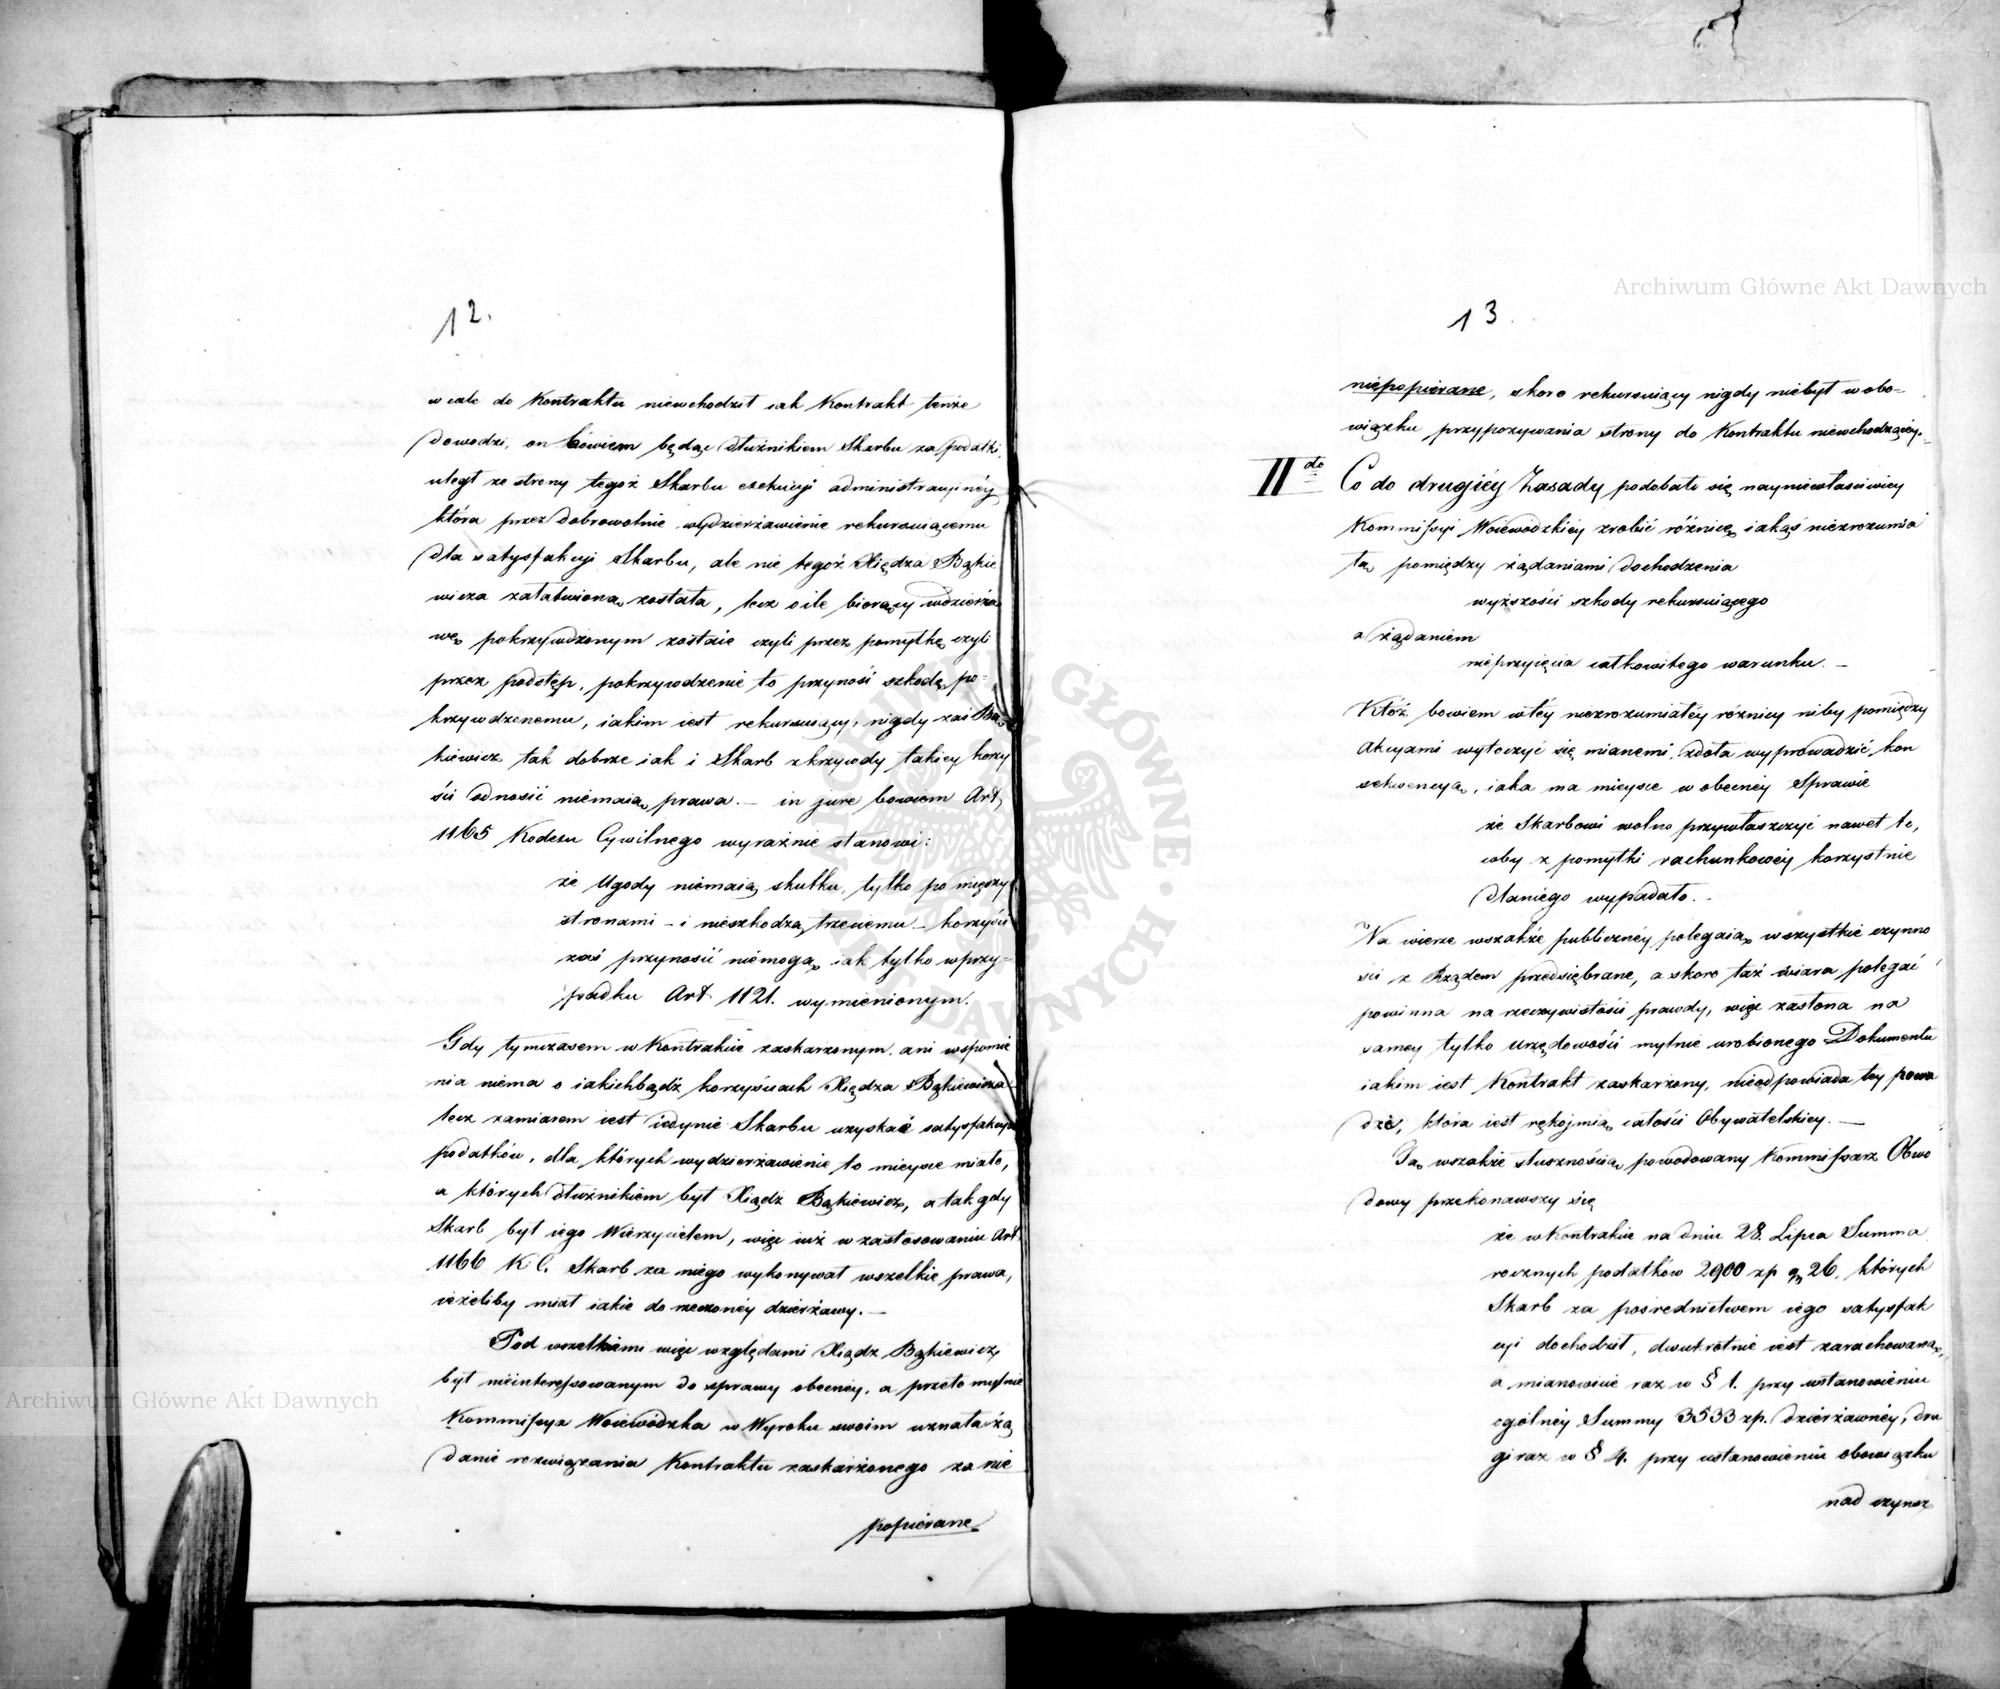 12.
wcale do Kontraktu niewchodził iak Kontrakt tenże
dowodzi, on bowiem będąc dłużnikiem Skarbu za podatki,
uległ ze strony tegoż Skarbu exekucyi administracyinéy
która przez dobrowolnie wydzierżawienie rekursuiącemu
dla satysfakcyi Skarbu, ale nie tegoż Xiędza Bąkie
wicza załatwioną została, lecz o ile biorący wdzierża
wę pokrzywdzonym zostaie czyli przez pomyłkę czyli
przez podstęp, pokrzywdzenie to przynosi szkodę po-
krzywdzonemu, iakim iest rekursuiący, nigdy zaś Bą
kiewicz tak dobrze iak i Skarb z krzywdy takiey korzy
ści odnosić niemaią prawa. – in jure bowiem Art,
1165 Kodexu Cywilnego wyraźnie stanowi:
że Ugody niemaią skutku, tylko pomięszy
stronami – i nieszkodzą trzeciemu – korzyści
zaś przynosić niemogą iak tylko w przy-
padku Art. 1121. wymienionym.
Gdy tymczasem w Kontrakcie zaskarzonym, ani wspomie
nia niema o iakichbądź korzyściach Xiędza Bąkiewicza
lecz zamiarem iest iedynie Skarbu uzyskać satysfakcyę
podatków, dla których wydzierżawienie to mieysce miało,
a których dłużnikiem był Xiądz Bąkiewicz, a tak gdy
Skarb był iego Wierzycielem, więc iuż w zastosowaniu Art.
1166 K C. Skarb za niego wykonywał wszelkie prawa,
ieżeliby miał iakie do rzeczonéy dzierżawy. –
Pod wszelkiemi więc względami Xiądz Bąkiewicz
był nieinteressowanym do sprawy obecnéy, a przeto mylnie
Kommissya Woiewódzka w Wyroku swoim uznała żą
danie rozwiązania Kontraktu zaskarżonego za nie
popierane
13.
niepopierane, skoro rekursuiący nigdy niebył w obo-
wiązku przypozywania strony do Kontraktu niewchodzącéy.
IIdo Co do drugiéy Zasady podobało się nayniewłaściwiey
Kommissyi Woiewodzkiey zrobić różnicę iakąś niezrozumia
łą pomiędzy żądaniami dochodzenia
wyższości szkody rekursuiącego
a żądaniem
nieprzyięcia całkowitego warunku. –
Któż bowiem w téy niezrozumiałéy róznicy niby pomiędzy
akcyami wytoczyć się mianemi, zdoła wyprowadzić kon
sekwencyą, iaka ma mieysce w obecnéy Sprawie
że Skarbowi wolno przywłaszczyć nawet to,
coby z pomyłki rachunkowéy korzystnie
dlaniego wypadało. –
Na wierze wszakże publicznéy polegaią wszystkie czynno
ści z Rządem przedsiębrane, a skoro taż wiara polegać
powinna na rzeczywistości prawdy, więc zasłona na
samey tylko urzędowości mylnie urobionego Dokumentu
iakim iest Kontrakt zaskarzony, nieodpowiada tey powa
dze, która iest rękojmią całości Obywatelskiey. –
Tą wszakże słusznością powodowany Kommissarz Obwo
dowy przekonawszy się
że w Kontrakcie na dniu 28. Lipca Summa
rocznych podatków 2900 zp. gr 26. których
Skarb za pośrednictwem iego satysfak
cyi dochodził, dwukrotnie iest zarachowaną,
a mianowicie raz w § 1. przy ustanowieniu
ogólnéy Summy 3533 zp. dzierżawnéy, dru
gi raz w § 4. przy ustanowieniu obowiązku
nad czynsz
Archiwum Główne Akt Dawnych
Archiwum Główne Akt Dawnych